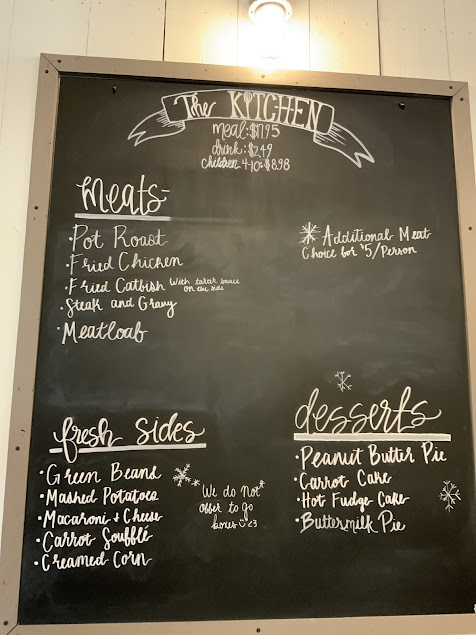 The KITCHEN
meal: $17.95
drink: $2.49
children 4-10: $8.98
Meats-
• Pot Roast
• Fried Chicken
• Fried Catfish with tarter sauce
on the side
• Steak and Gravy
• Meatloaf
* Additional Meat
Choice for $5/Person
fresh sides
• Green Beans
• Mashed Potatoes
• Macaroni + Cheese
• Carrot Soufflé
• Creamed Corn
*We do not*
offer to go
boxes :) <3
desserts
• Peanut Butter Pie
• Carrot Cake
• Hot Fudge Cake
• Buttermilk Pie